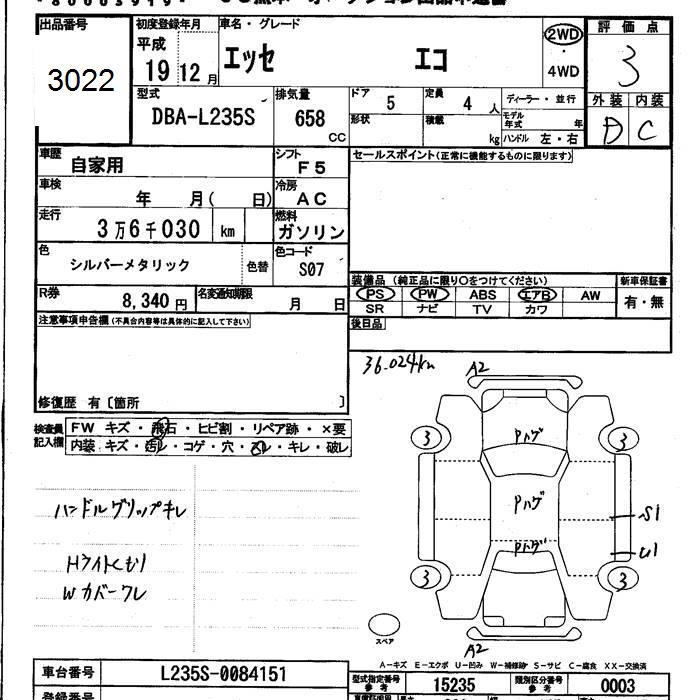 出品番号 3022
初度登録年月 平成 19 12 月
車名・グレード エッセ エコ
2WD ・ 4WD
評価点 3
型式 DBA-L235S
排気量 658 CC
ドア 5 定員 4 人
形状 積載 kg
ディーラー・並行
モデル年式 年
ハンドル 左・右
外装 内装
D C
車歴 自家用
シフト F5
セールスポイント(正常に機能するものに限ります)
車検 年 月( 日)
冷房 AC
走行 3万6千030 km
燃料 ガソリン
色 シルバーメタリック 色替
色コード S07
装備品 (純正品に限り○をつけてください) 新車保証書
PS PW ABS エアB AW 有・無
SR ナビ TV カワ
R券 8,340 円
名変通知期限 月 日
後日品
注意事項申告欄(不具合内容等は具体的に記入して下さい)
36.024km
A2
修復歴 有〔箇所 〕
検査員記入欄
FW キズ・飛石・ヒビ割・リペア跡・×要
内装 キズ・汚レ・コゲ・穴・スレ・キレ・破レ
3 3
Pハゲ
Pハゲ
Pハゲ
S1
U1
3 3
ハンドルグリップキレ
Hライトくもり
Wカバーワレ
スペア
A2
A-キズ E-エクボ U-凹み W-補修跡 S-サビ C-腐食 XX-交換済
車台番号 L235S-0084151
型式指定番号 参考 15235
類別区分番号 参考 0003
登録番号